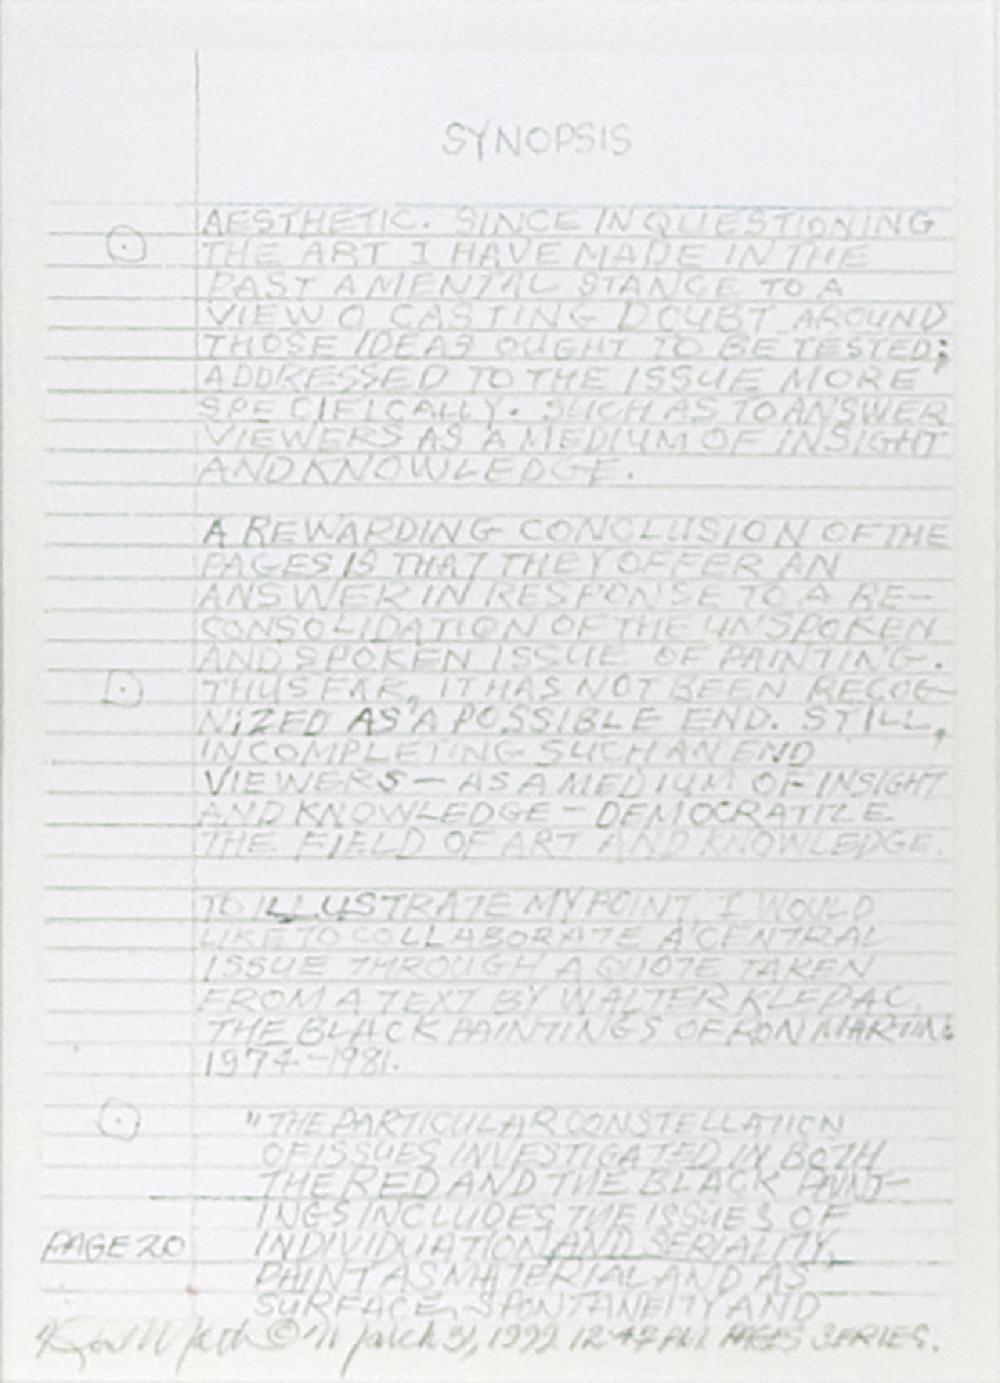 SYNOPSIS
AESTHETIC. SINCE IN QUESTIONING
THE ART I HAVE MADE IN THE
PAST A MENTAL STANCE TO A
VIEW O CASTING DOUBT AROUND
THOSE IDEAS OUGHT TO BE TESTED;
ADDRESSED TO THE ISSUE MORE
SPECIFICALLY. SUCH AS TO ANSWER
VIEWERS AS A MEDIUM OF INSIGHT
AND KNOWLEDGE.
A REWARDING CONCLUSION OF THE
PAGES IS THAT THEY OFFER AN
ANSWER IN RESPONSE TO A RE-
CONSOLIDATION OF THE UNSPOKEN
AND SPOKEN ISSUE OF PAINTING.
THUS FAR, IT HAS NOT BEEN RECOG-
NIZED AS A POSSIBLE END. STILL,
IN COMPLETING SUCH AN END
VIEWERS – AS A MEDIUM OF INSIGHT
AND KNOWLEDGE – DEMOCRATIZE
THE FIELD OF ART AND KNOWLEDGE.
TO ILLUSTRATE MY POINT, I WOULD
LIKE TO COLLABORATE A CENTRAL
ISSUE THROUGH A QUOTE TAKEN
FROM A TEXT BY WALTER KLEPAC,
THE BLACK PAINTINGS OF RON MARTIN
1974-1981.
"THE PARTICULAR CONSTELLATION
OF ISSUES INVESTIGATED IN BOTH
THE RED AND THE BLACK PAINT-
INGS INCLUDES THE ISSUES OF
INDIVIDUATION AND SERIALITY,
PAGE 20
PAINT AS MATERIAL AND AS
SURFACE, SPONTANEITY AND
© March 31, 1999 12:42 PM PAGES SERIES.